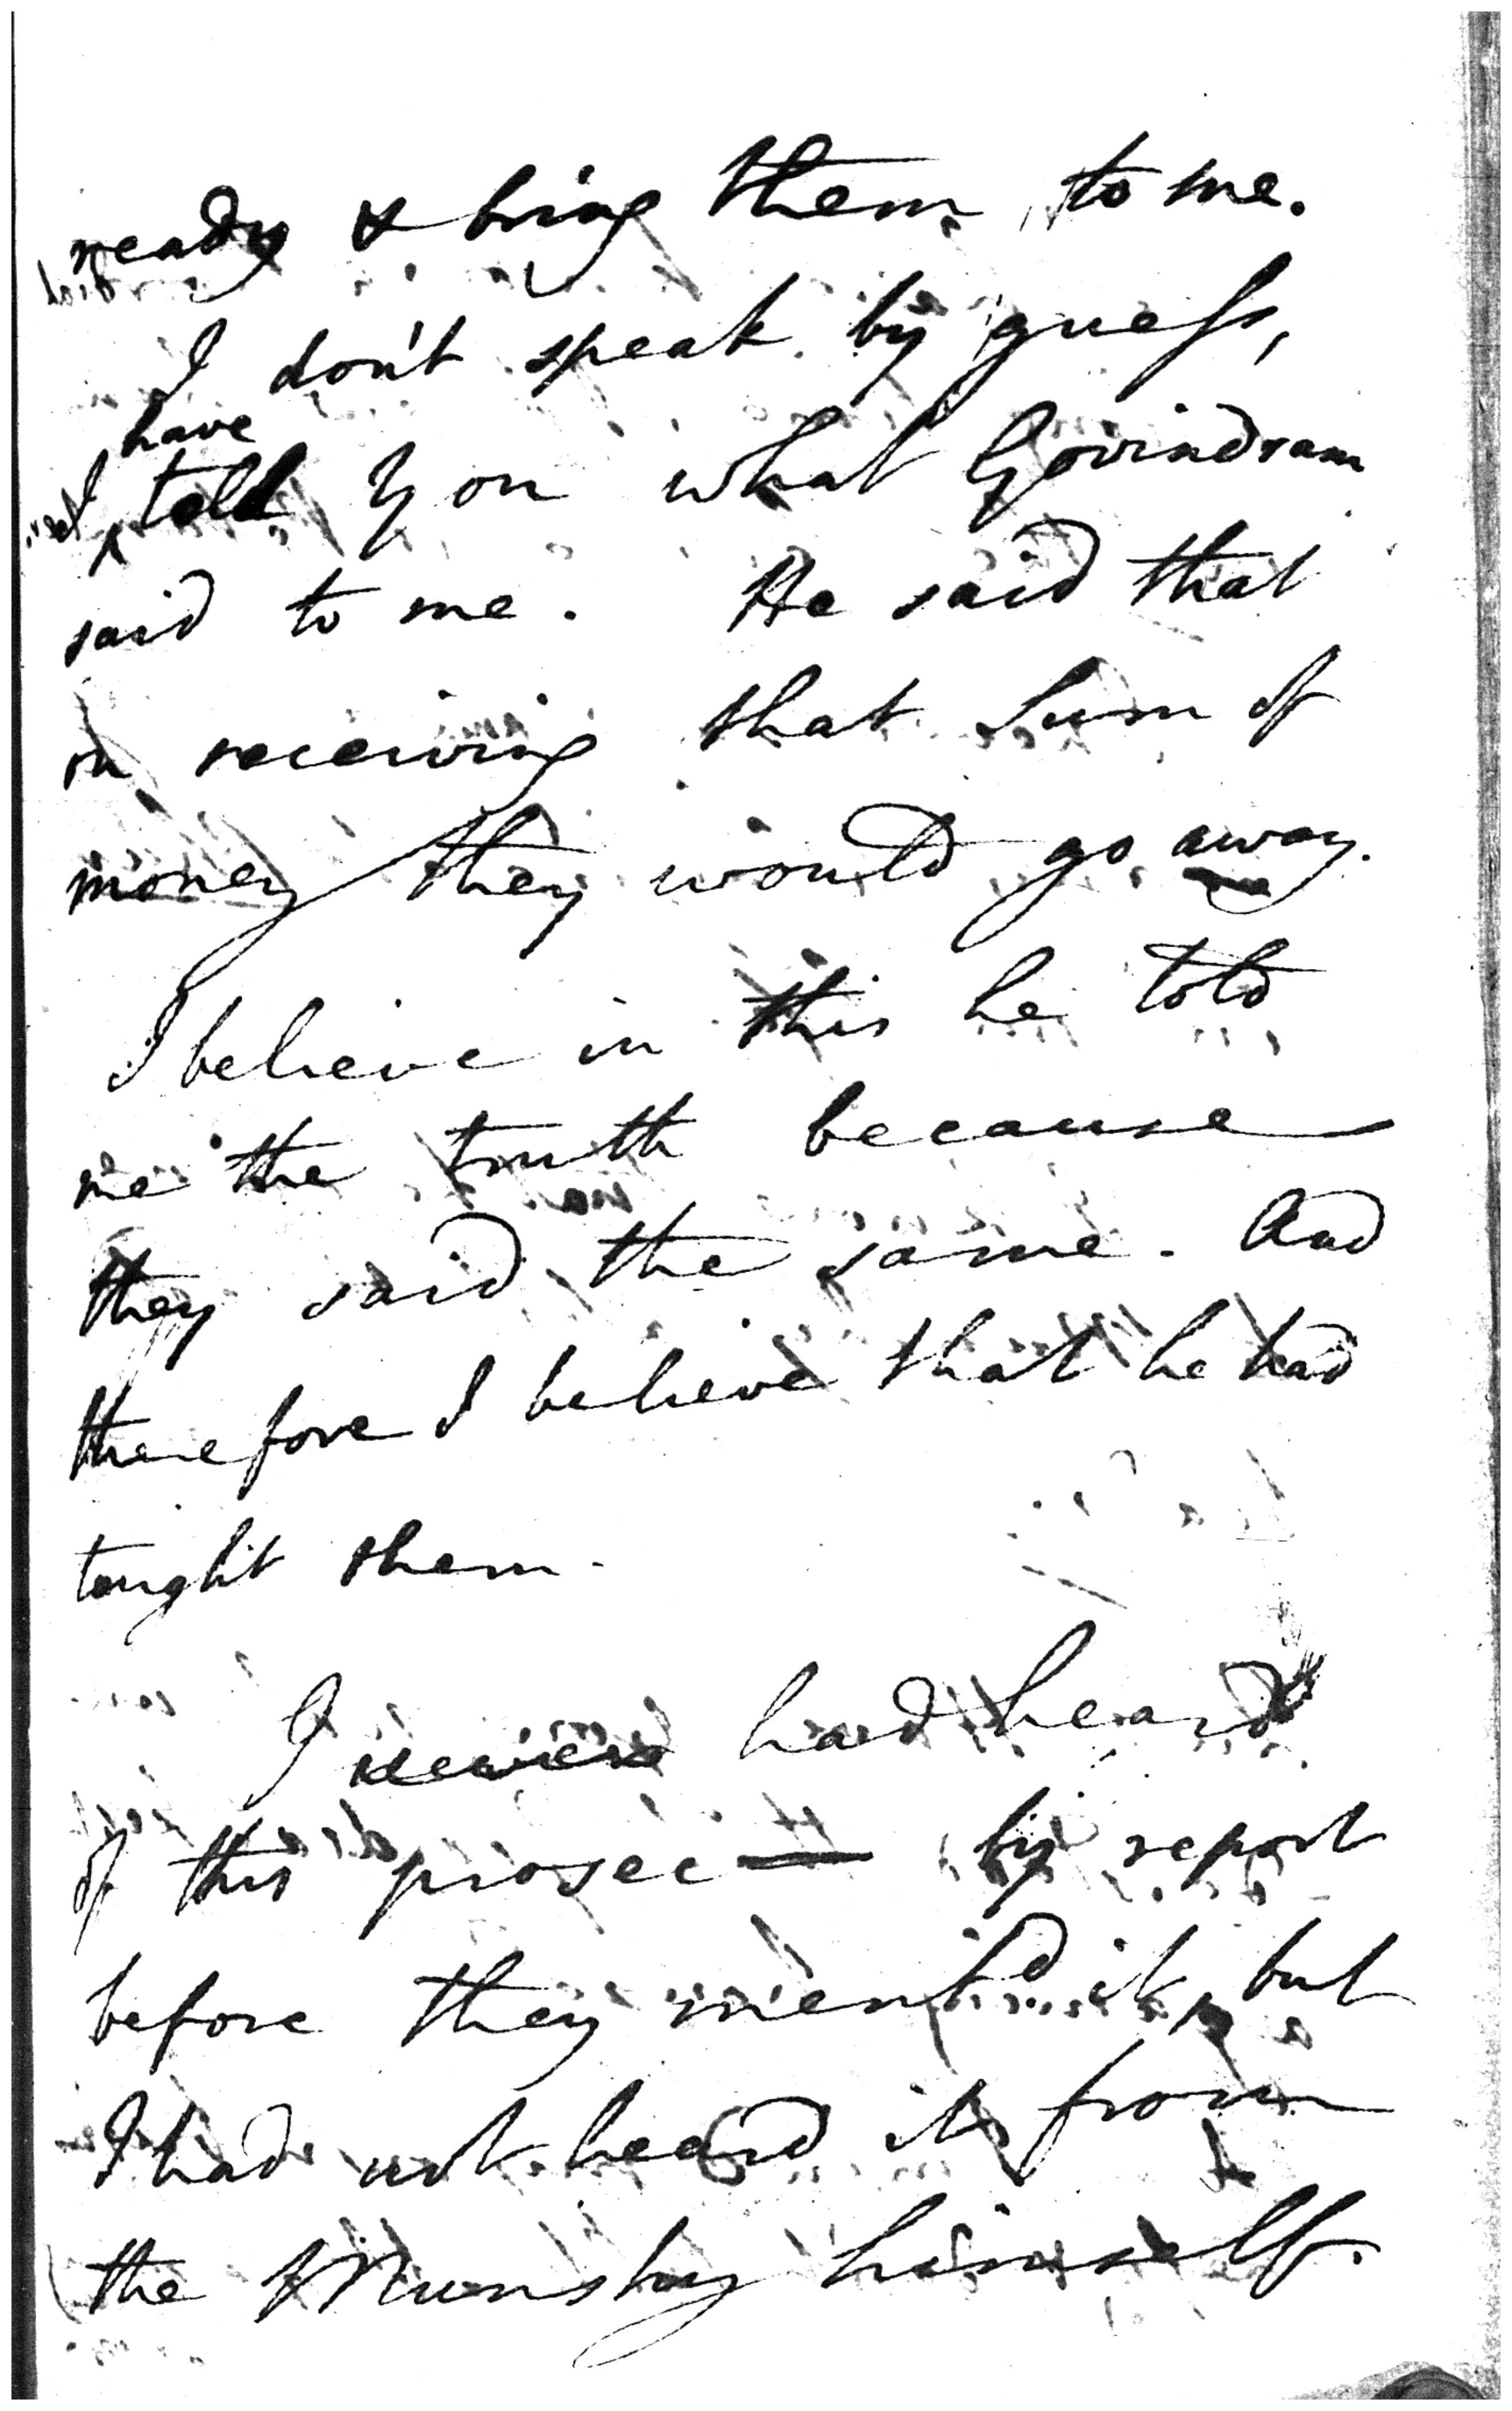 ready & bring them to me.
I don't speak by guess,
I have told you what Govindram
said to me. He said that
on receiving that sum of
money they would go away.
I believe in this he told
me the truth because
they said the same. And
therefore I believe that he had
tought them.
I never had heard
of this prosec— by report
before they ment.d it, but
I had not heard it from
the Munshy himself.